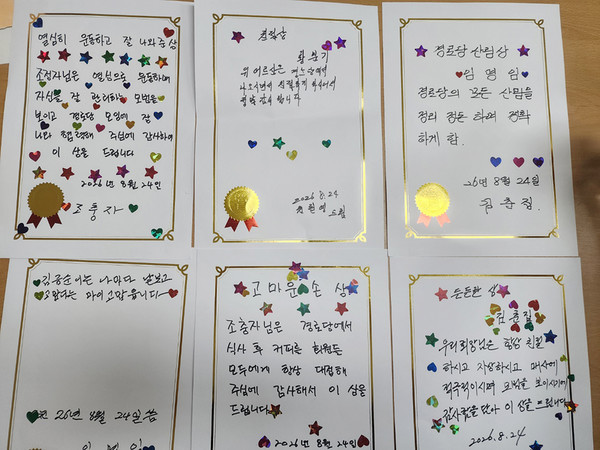 열심히 운동하고 잘 나와준 상
조정자님은 열심으로 운동하며
자신을 잘 관리하는 모범을
보이고 경로당 모임에 잘
나와 협력해 주심에 감사하여
이 상을 드립니다
2026년 8월 24일
조충자
친절상
위 어르신은 경노당에
나오시면서
2026. 8. 24
드림
경로당 살림상
임영임
경로당의 모든 살림을
정리 정돈 하며 깨끗
하게 함.
26년 8월 24일
김춘집
김종순이는 나마다 날보고
26년 8월 24일씀
임영임
고마운 손 상
조충자님은 경로당에서
식사 후 커피를 회원들
모두에게 항상 대접해
주심에 감사해서 이 상을
드립니다
2026년 8월 24일
든든한 상
김춘집
우리회장님은 항상 친절
하시고 자상하시고 매사에
적극적이시며 모범을 보이시기에
감사함을 담아 이 상을 드립니다
2026. 8. 24